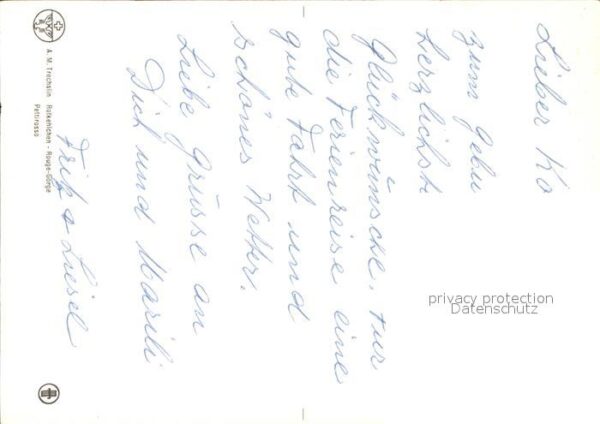 Lieber Ko
zum Gebu
herzlichste
Glückwünsche. Für
die Ferienreise eine
gute Fahrt und
schönes Wetter.
Liebe Grüsse an
Dich und Marili
Fritz & Liesel
A. M. Trechslin Rotkehlchen - Rouge-Gorge
Pettirosso
privacy protection
Datenschutz